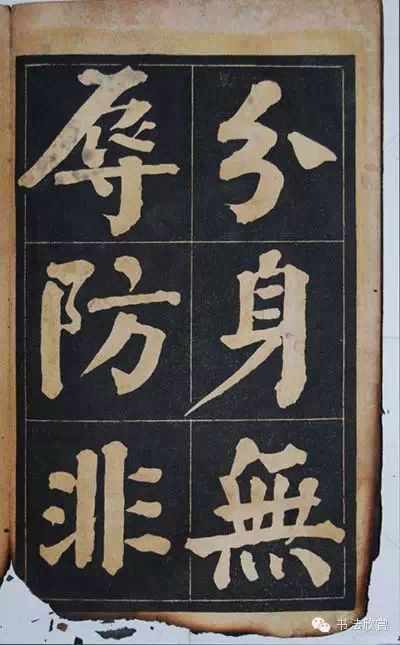 分身無
辱防非
书法欣赏